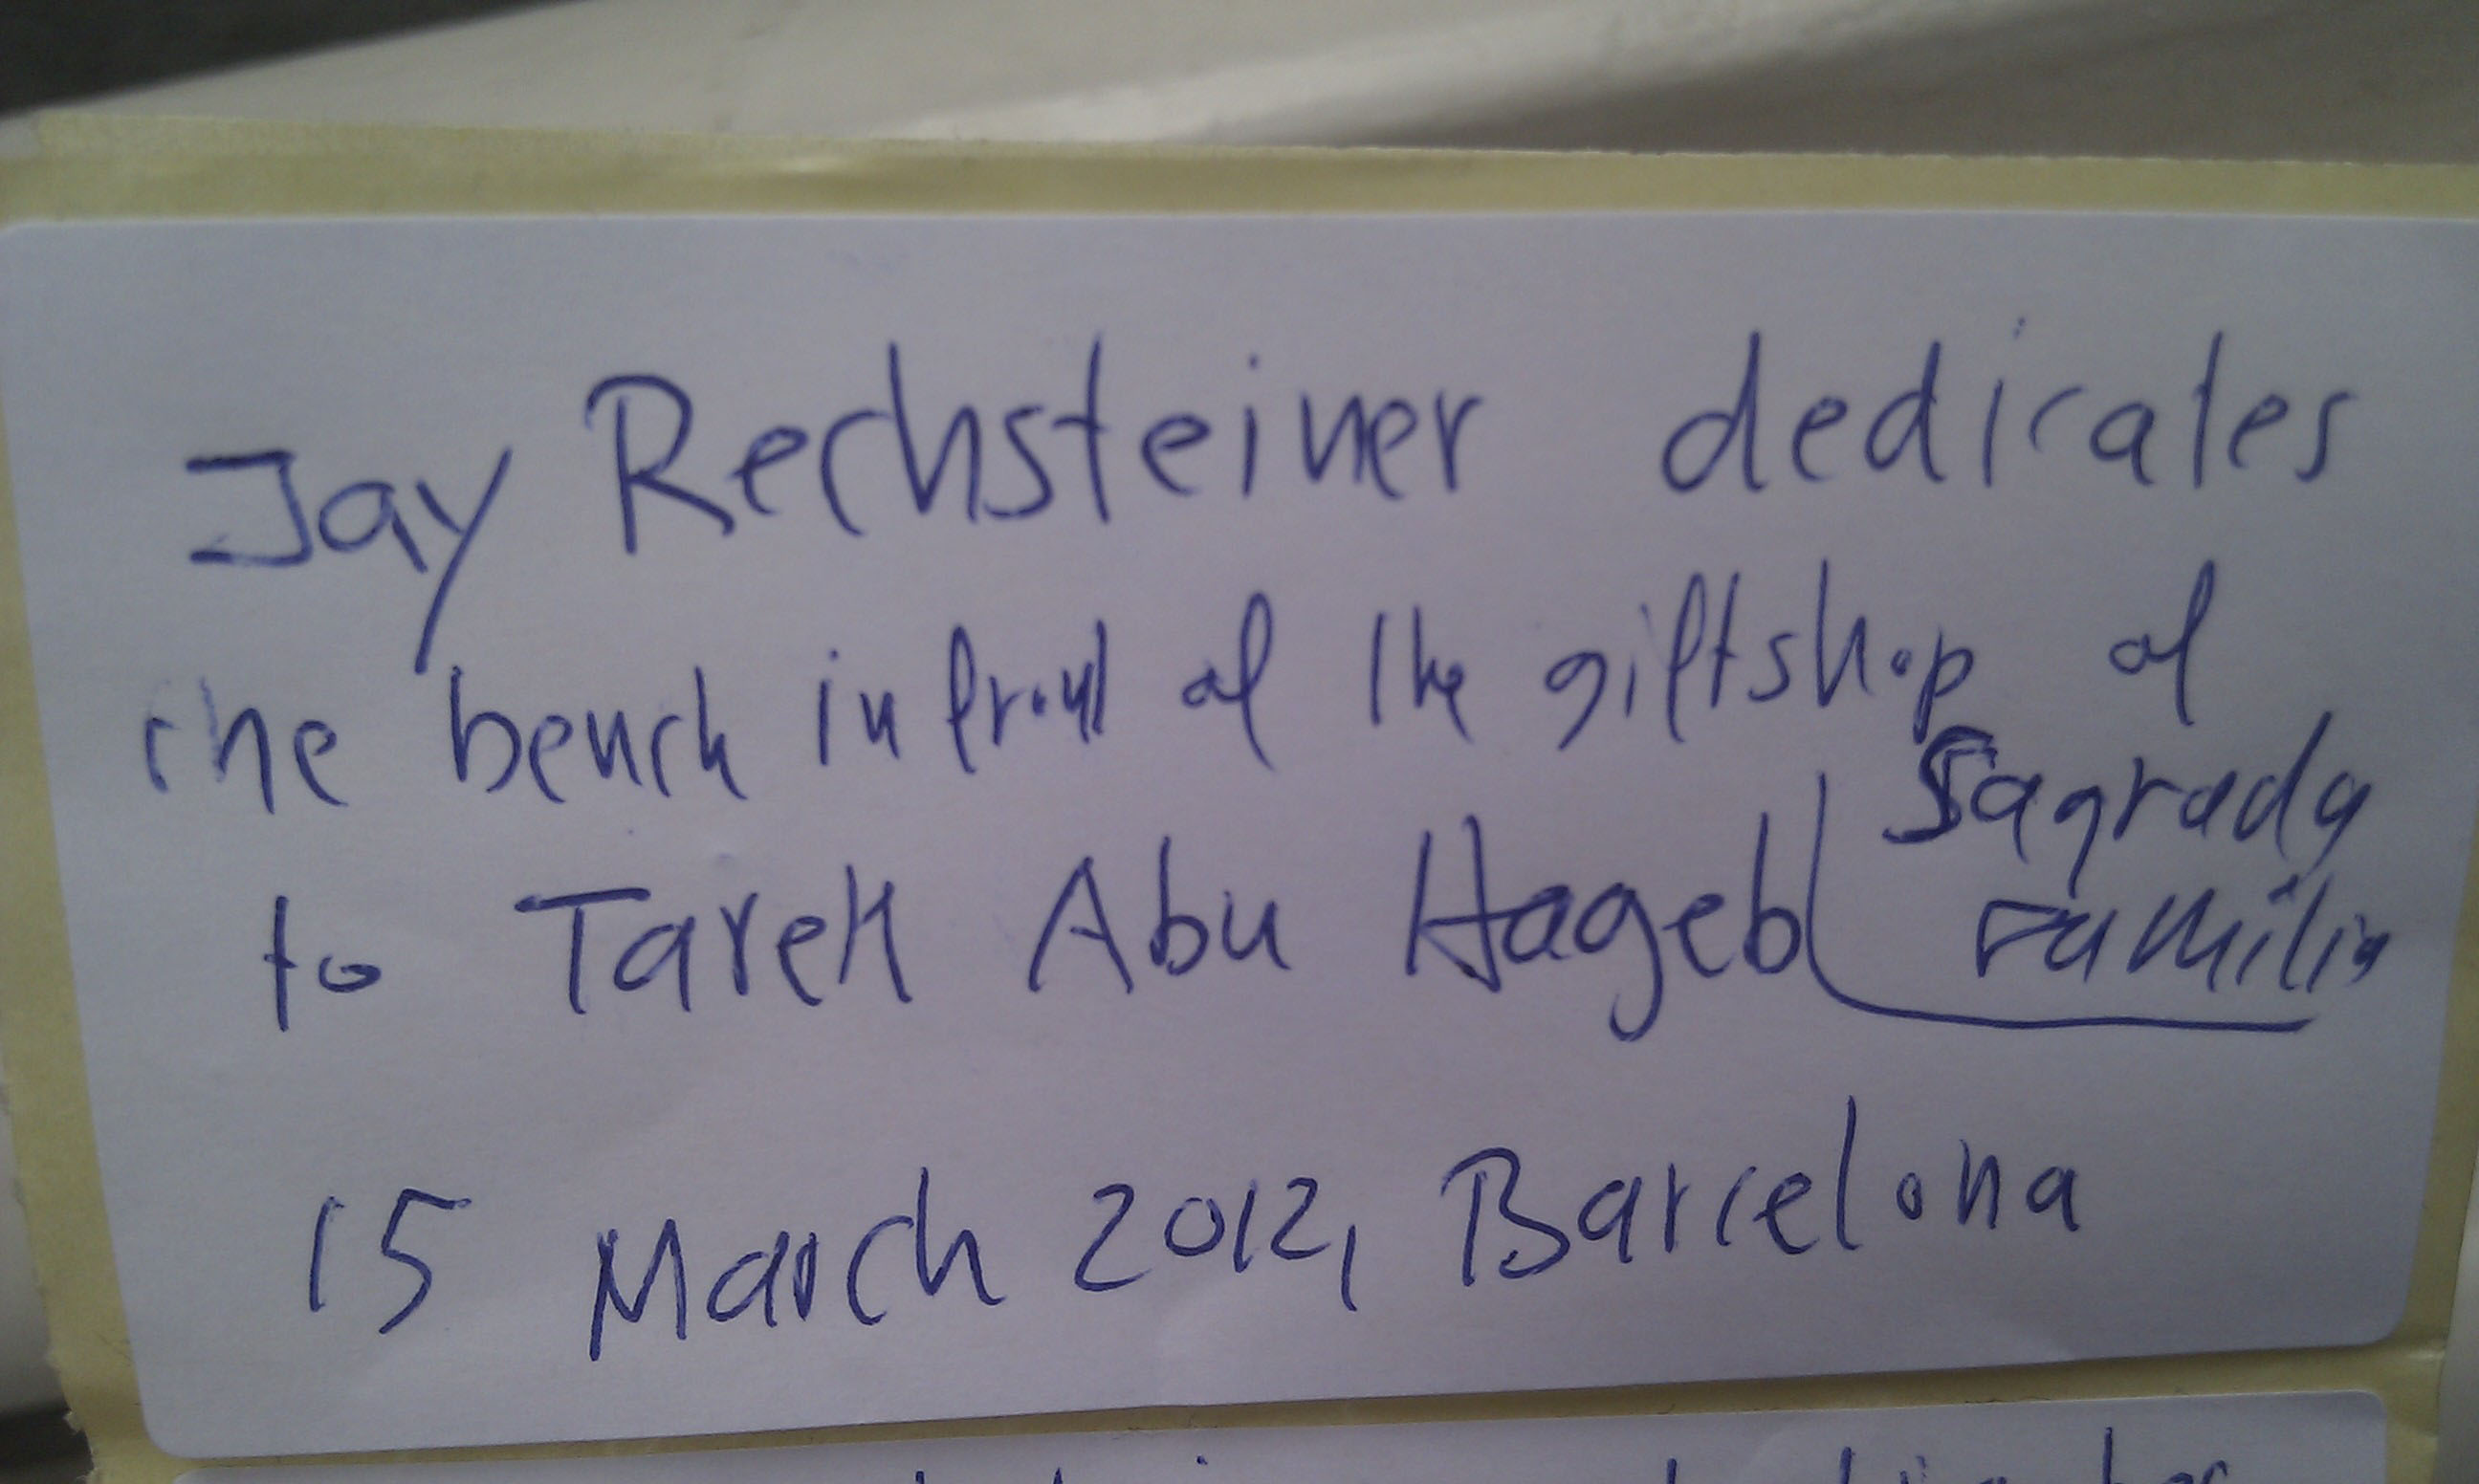 Jay Rechsteiner dedicates
the bench in front of the giftshop of
Sagrada
Familia
to Tarek Abu Hageb
15 March 2012, Barcelona